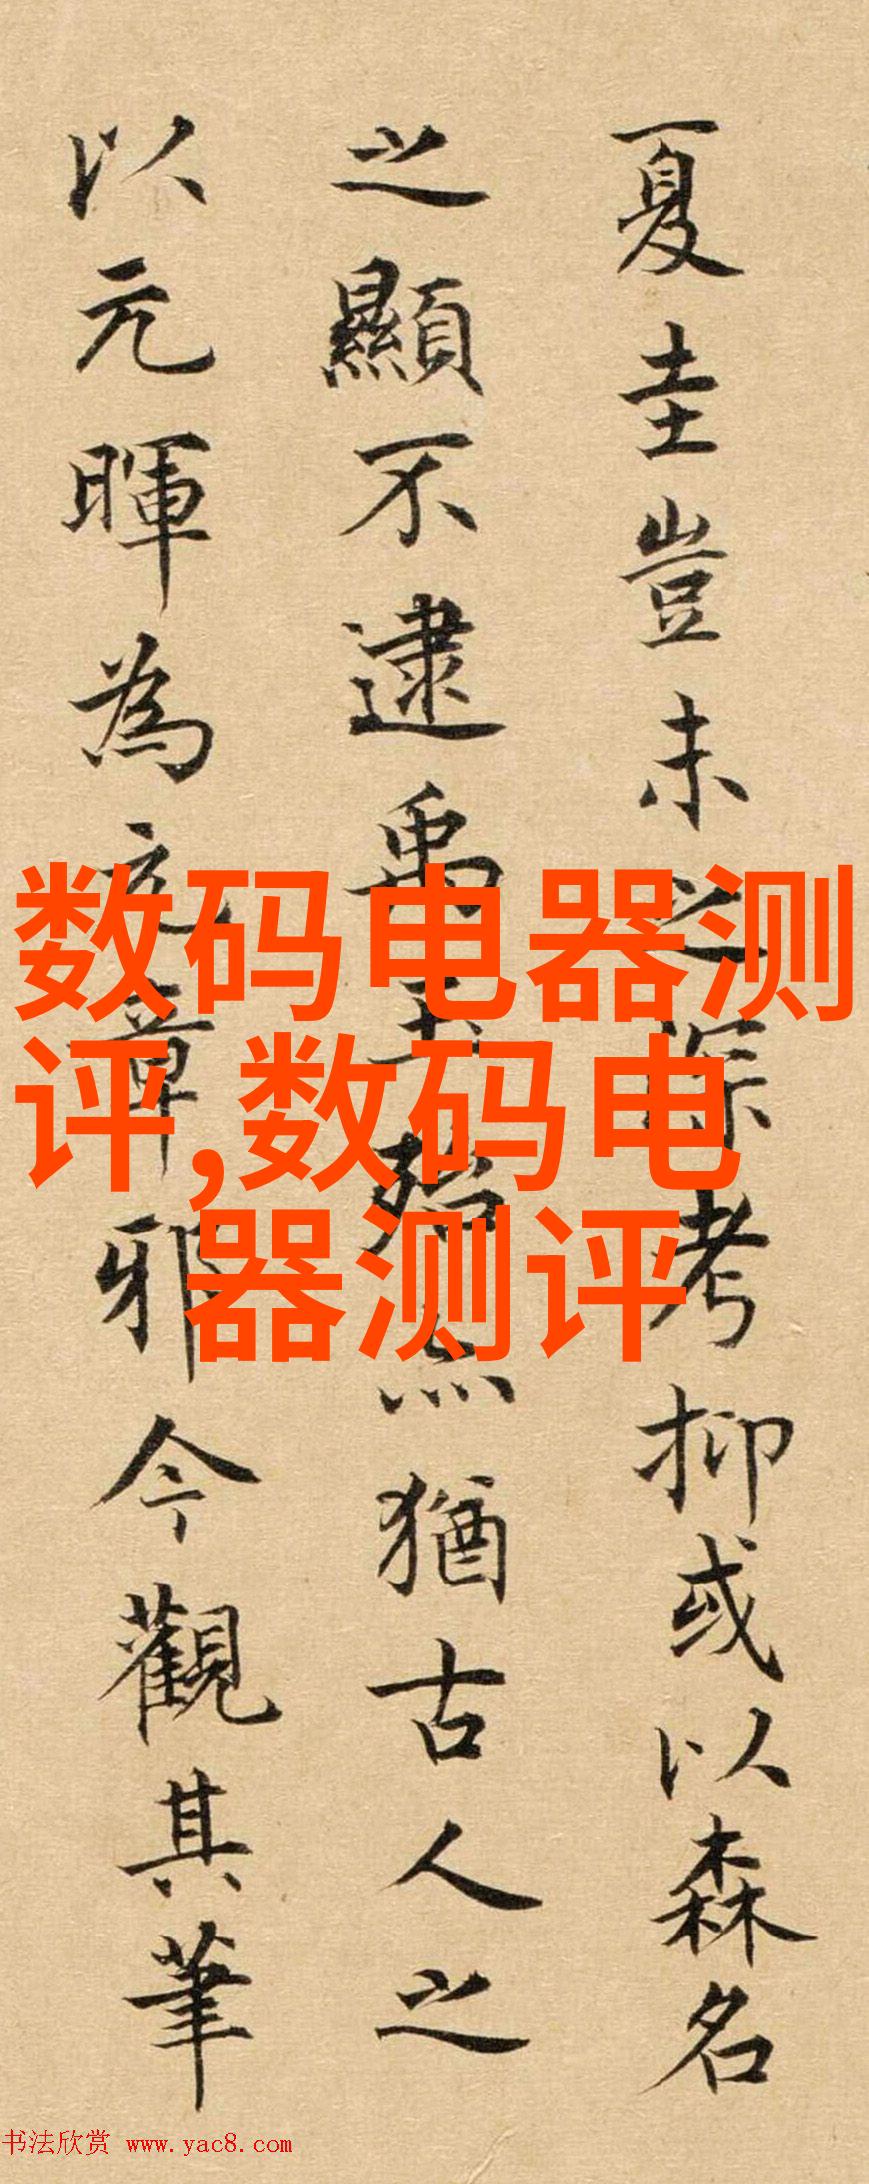 夏圭豈未之深考抑或以森名
之顯不逮禹玉殆亦猶古人之
以元暉為元章邪今觀其筆
数码电器测
评,数码电
器测评
书法欣赏 www.yac8.com